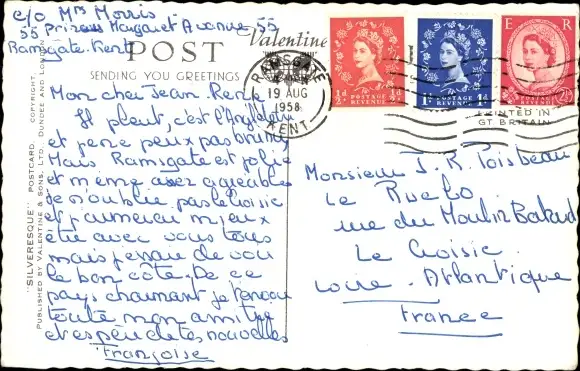 c/o Mrs Morris
55 Princess Margaret Avenue 55
Ramsgate Kent
POST
Valentine
SENDING YOU GREETINGS
RAMSGATE
19 AUG
1958
KENT
½d ½d
POSTAGE REVENUE
1d 1d
POSTAGE REVENUE
E R
POSTAGE REVENUE
PRINTED IN
GT BRITAIN
"SILVERESQUE" POSTCARD. COPYRIGHT.
PUBLISHED BY VALENTINE & SONS, LTD., DUNDEE AND LONDON
Mon cher Jean René
Il pleut, c'est l'Angleterre
et je ne peux pas
Mais Ramsgate est jolie
et même assez agréable
Je n'oublie pas le Croisic
et j'aimerai mieux
être avec vous tous
mais j'essaie de voir
le bon côté. De ce
pays charmant je t'envoie
toute mon amitié
et espère de tes nouvelles
Françoise
Monsieur J. R Poisbeau
Le
rue du Moulin
Le Croisic
Loire-Atlantique
France